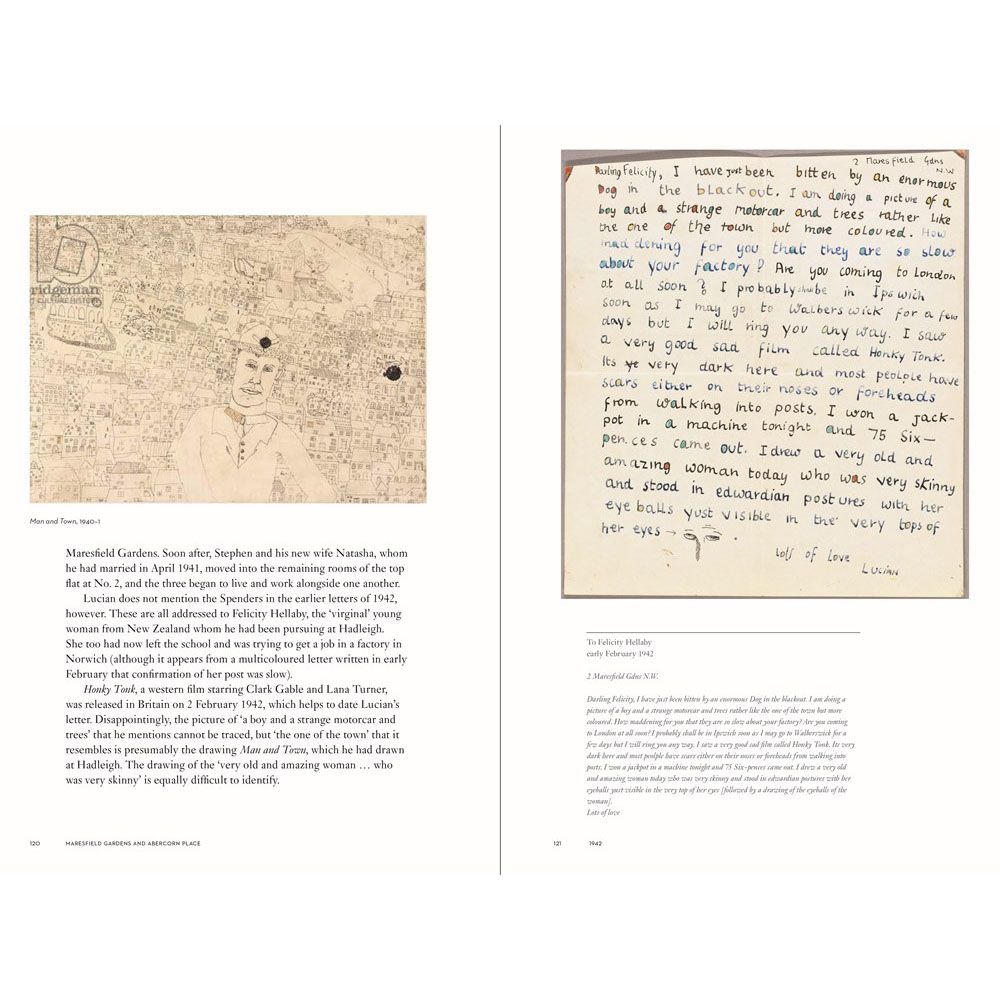 ridgeman
Man and Town, 1940–1
Maresfield Gardens. Soon after, Stephen and his new wife Natasha, whom
he had married in April 1941, moved into the remaining rooms of the top
flat at No. 2, and the three began to live and work alongside one another.
Lucian does not mention the Spenders in the earlier letters of 1942,
however. These are all addressed to Felicity Hellaby, the ‘virginal’ young
woman from New Zealand whom he had been pursuing at Hadleigh.
She too had now left the school and was trying to get a job in a factory in
Norwich (although it appears from a multicoloured letter written in early
February that confirmation of her post was slow).
Honky Tonk, a western film starring Clark Gable and Lana Turner,
was released in Britain on 2 February 1942, which helps to date Lucian’s
letter. Disappointingly, the picture of ‘a boy and a strange motorcar and
trees’ that he mentions cannot be traced, but ‘the one of the town’ that it
resembles is presumably the drawing Man and Town, which he had drawn
at Hadleigh. The drawing of the ‘very old and amazing woman … who
was very skinny’ is equally difficult to identify.
120 MARESFIELD GARDENS AND ABERCORN PLACE
2 Maresfield Gdns
N.W
Darling Felicity, I have just been bitten by an enormous
Dog in the blackout. I am doing a picture of a
boy and a strange motorcar and trees rather like
the one of the town but more coloured. How
maddening for you that they are so slow
about your factory? Are you coming to London
at all soon? I probably shall be in Ipswich
soon as I may go to Walberswick for a few
days but I will ring you any way. I saw
a very good sad film called Honky Tonk.
Its very dark here and most peolple have
scars either on their noses or foreheads
from walking into posts. I won a jack-
pot in a machine tonight and 75 Six-
pences came out. I drew a very old and
amazing woman today who was very skinny
and stood in edwardian postures with her
eye balls yust visible in the very tops of
her eyes → .
Lots of love
Lucian
To Felicity Hellaby
early February 1942
2 Maresfield Gdns N.W.
Darling Felicity, I have just been bitten by an enormous Dog in the blackout. I am doing a
picture of a boy and a strange motorcar and trees rather like the one of the town but more
coloured. How maddening for you that they are so slow about your factory? Are you coming
to London at all soon? I probably shall be in Ipswich soon as I may go to Walberswick for a
few days but I will ring you any way. I saw a very good sad film called Honky Tonk. Its very
dark here and most peolple have scars either on their noses or foreheads from walking into
posts. I won a jackpot in a machine tonight and 75 Six-pences came out. I drew a very old
and amazing woman today who was very skinny and stood in edwardian postures with her
eyeballs just visible in the very top of her eyes [followed by a drawing of the eyeballs of the
woman].
Lots of love
121 1942